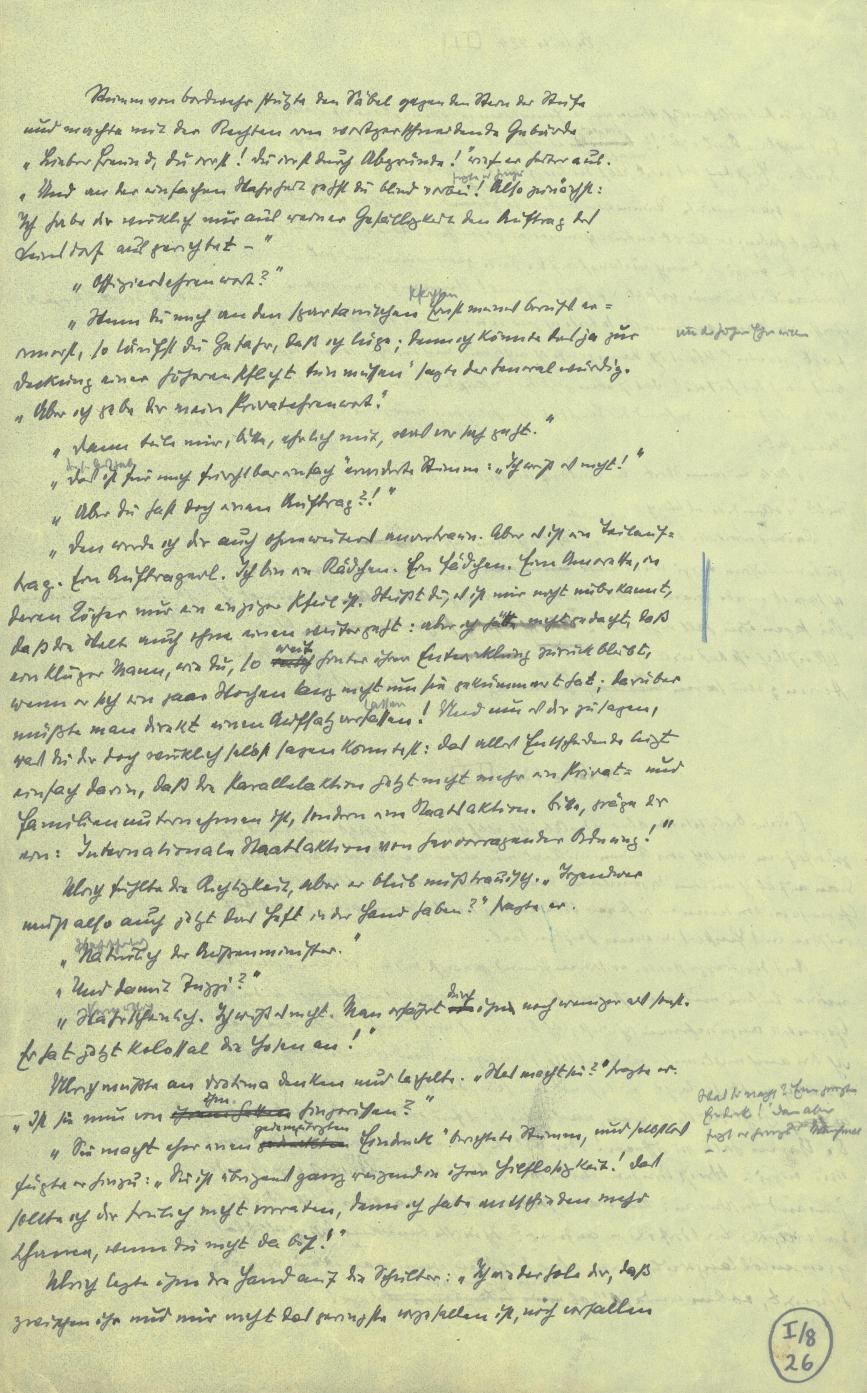 Stumm von Bordwehr stützte den Säbel gegen den Stern der Stufe
und machte mit der Rechten eine wortzerschneidende Gebärde
„Lieber Freund, du irrst! Du irrst durch Abgründe!" rief er aus.
„Und an der einfachen Wahrheit gehst du blind vorbei! Also zunächst:
Ich habe dir wirklich nur aus meiner Gefälligkeit den Auftrag des
Leinsdorf ausgerichtet – "
„Offiziersehrenwort?"
„Wenn du mich an den spartanischen Ernst meines Berufs er=
innerst, so läufst du Gefahr, daß ich lüge; denn ich könnte das ja zur
Deckung einer höheren Pflicht tun müssen" sagte der General würdig.
„Aber ich gebe dir mein Privatehrenwort."
„Dann teile mir, bitte, ehrlich mit, was vor sich geht."
„Das ist für mich furchtbar einfach" erwiderte Stumm: „Ich weiß es nicht!"
„Aber du hast doch einen Auftrag?!"
„Den werde ich dir auch ohneweiters anvertraun. Aber es ist ein Teilauf=
trag. Ein Auftragerl. Ich bin ein Rädchen. Ein Fädchen. Ein Amorette, in
deren Köcher nur ein einziger Pfeil ist. Weißt du, es ist mir nicht unbekannt,
daß die Welt auch ohne einen weitergeht: aber ich hätte nicht gedacht, daß
ein kluger Mann, wie du, so weit hinter ihrer Entwicklung zurückbleibt,
wenn er sich ein paar Wochen lang nicht um sie gekümmert hat; darüber
müßte man direkt einen Aufsatz verfassen! Und nun es dir zu sagen,
was du dir doch wirklich selbst sagen könntest: das alles Entscheidende liegt
einfach darin, daß die Parallelaktion jetzt nicht mehr ein Privat= und
Familienunternehmen ist, sondern eine Staatsaktion. Bitte, präge dir
ein: Internationale Staatsaktion von hervorragender Ordnung!"
Ulrich fühlte die Richtigkeit, aber er blieb mißtrauisch. „Irgendwer
muß also auch jetzt das Heft in der Hand haben?" sagte er.
„Natürlich der Außenminister."
„Und damit Tuzzi?"
„Wahrscheinlich. Ich weiß es nicht. Man erfährt durch ihn noch weniger als sonst.
Er hat jetzt kolossal die Hosen an!"
Ulrich mußte an Diotima denken und lächelte. „Was macht sie?" fragte er.
„Ist sie nun von ihm hingerissen?"
„Sie macht eher einen gedämpften Eindruck" berichtete Stumm, und selbstlos
fügte er hinzu: „Sie ist übrigens ganz reizend in ihrer Hilflosigkeit! Das
sollte ich dir freilich nicht verraten, denn ich habe entschieden mehr
Chancen, wenn du nicht da bist!"
Ulrich legte ihm die Hand auf die Schulter: „Ich wiederhole dir, daß
zwischen ihr und mir nicht das geringste vorgefallen ist, noch vorfallen
I/8
26